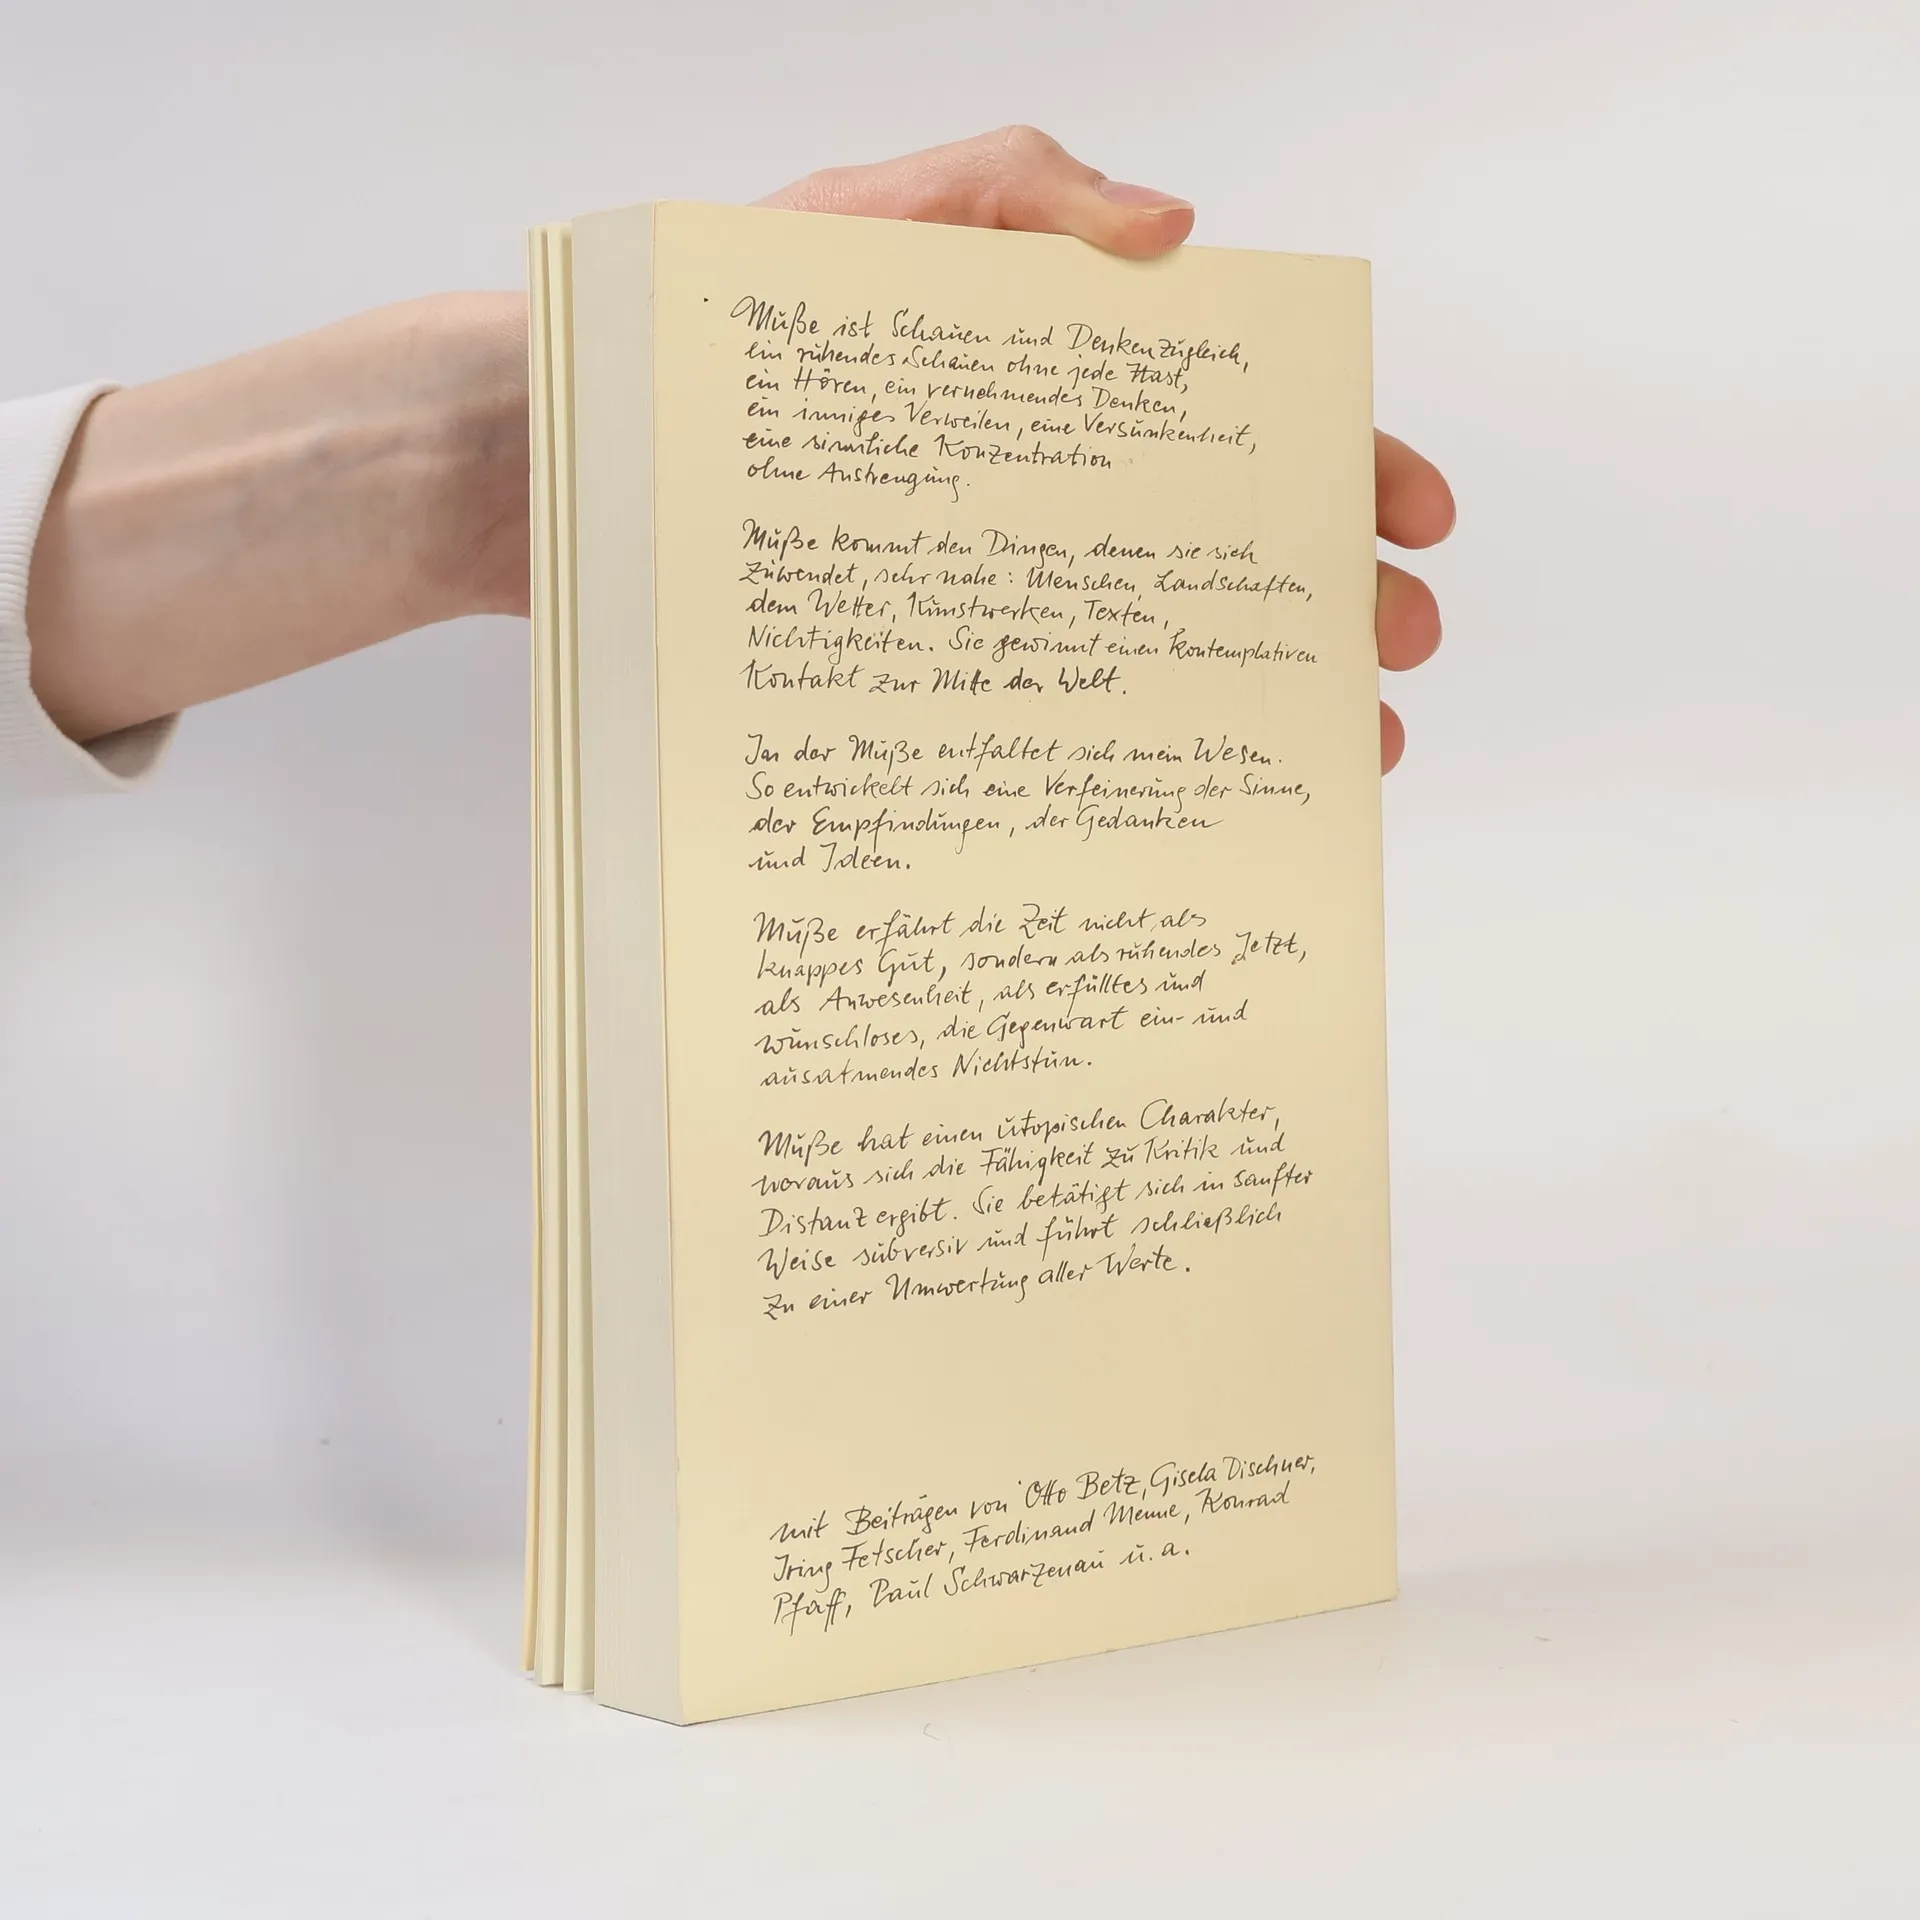 Muße ist Schauen und Denken zugleich,
ein ruhendes Schauen ohne jede Hast,
ein Hören, ein vernehmendes Denken,
ein inniges Verweilen, eine Versunkenheit,
eine sinnliche Konzentration
ohne Anstrengung.
Muße kommt den Dingen, denen sie sich
zuwendet, sehr nahe: Menschen, Landschaften,
dem Wetter, Kunstwerken, Texten,
Nichtigkeiten. Sie gewinnt einen kontemplativen
Kontakt zur Mitte der Welt.
In der Muße entfaltet sich mein Wesen.
So entwickelt sich eine Verfeinerung der Sinne,
der Empfindungen, der Gedanken
und Ideen.
Muße erfährt die Zeit nicht als
knappes Gut, sondern als ruhendes Jetzt,
als Anwesenheit, als erfülltes und
wunschloses, die Gegenwart ein- und
ausatmendes Nichtstun.
Muße hat einen utopischen Charakter,
woraus sich die Fähigkeit zu Kritik und
Distanz ergibt. Sie betätigt sich in sanfter
Weise subversiv und führt schließlich
zu einer Umwertung aller Werte.
mit Beiträgen von Otto Betz, Gisela Dischner,
Iring Fetscher, Ferdinand Menne, Konrad
Pfaff, Paul Schwarzenau u.a.